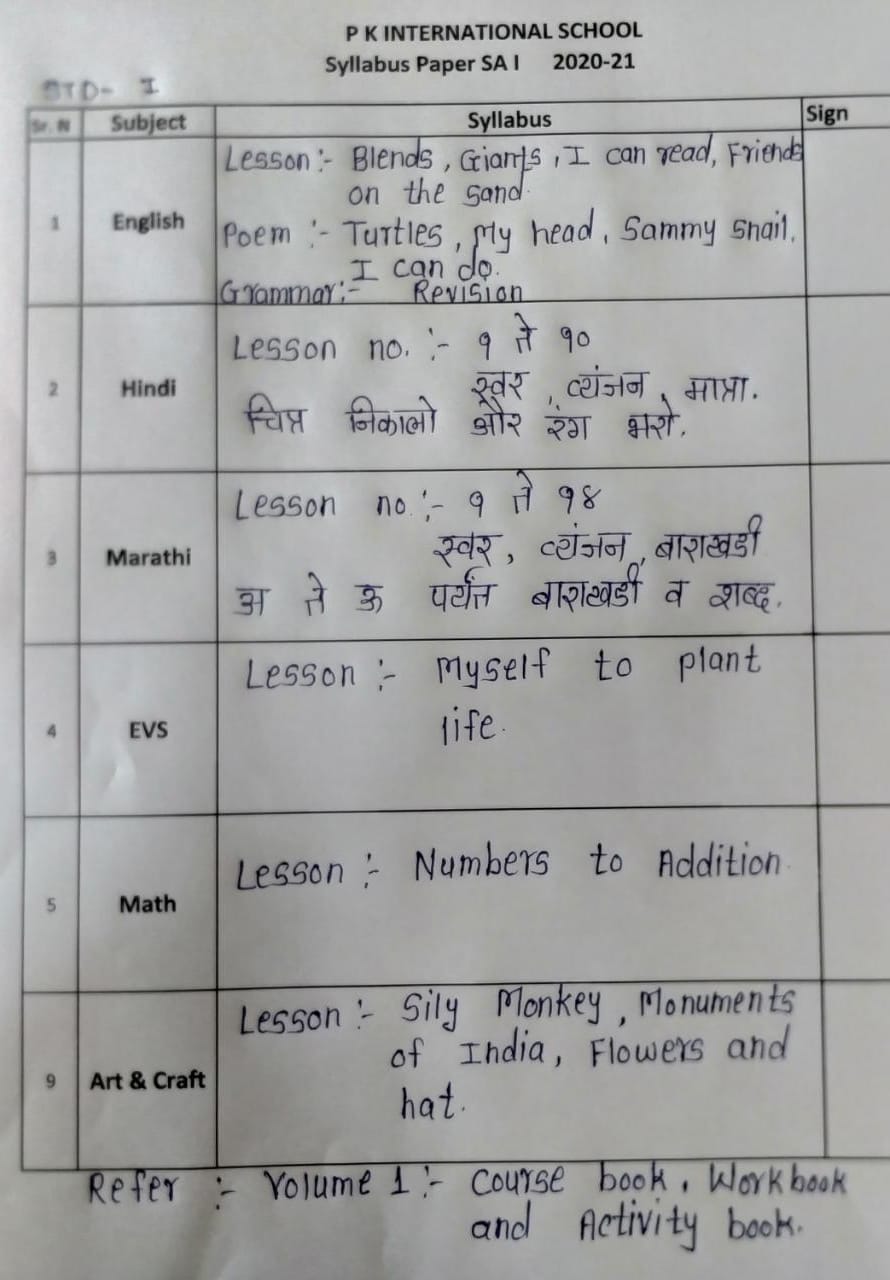 P K INTERNATIONAL SCHOOL
Syllabus Paper SA I 2020-21
STD- I
Sr. N Subject Syllabus Sign
1 English Lesson :- Blends, Giants, I can read, Friends
on the sand.
Poem :- Turtles, My head, Sammy snail,
I can do.
Grammar:- Revision
2 Hindi Lesson no. :- १ ते १०
स्वर, व्यंजन, मात्रा.
चित्र निकालो और रंग भरो.
3 Marathi Lesson no :- १ ते १४
स्वर, व्यंजन, बाराखडी
अ ते ऊ पर्यंत बाराखडी व शब्द.
4 EVS Lesson :- Myself to plant
life.
5 Math Lesson :- Numbers to Addition
9 Art & Craft Lesson :- Sily Monkey, Monuments
of India, Flowers and
hat.
Refer :- Volume 1 :- Course book, Workbook
and Activity book.